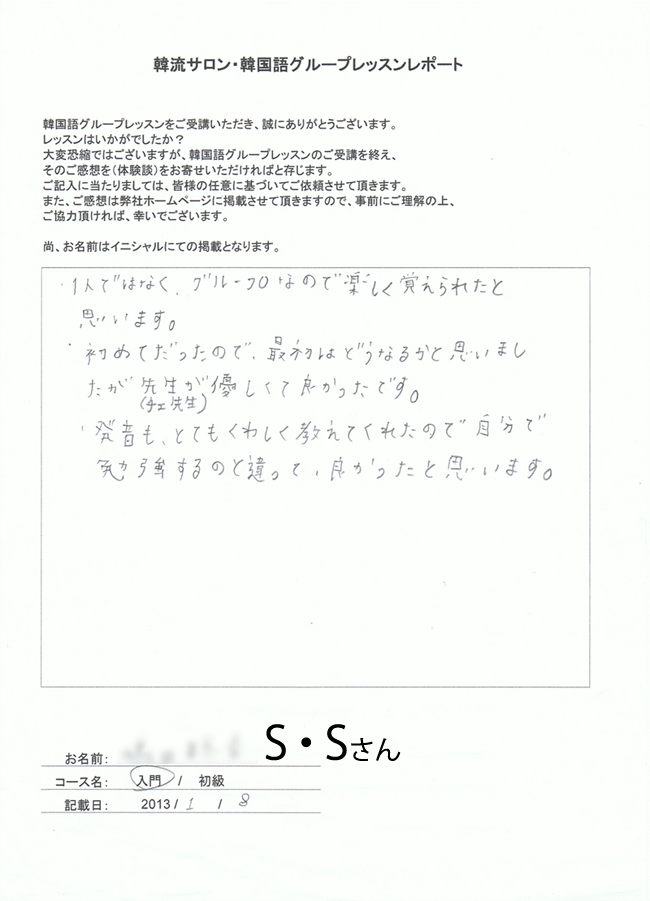 韓流サロン・韓国語グループレッスンレポート
韓国語グループレッスンをご受講いただき、誠にありがとうございます。
レッスンはいかがでしたか？
大変恐縮ではございますが、韓国語グループレッスンのご受講を終え、
そのご感想を（体験談）をお寄せいただければと存じます。
ご記入に当たりましては、皆様の任意に基づいてご依頼させて頂きます。
また、ご感想は弊社ホームページに掲載させて頂きますので、事前にご理解の上、
ご協力頂ければ、幸いでございます。
尚、お名前はイニシャルにての掲載となります。
・1人ではなく、グループなので楽しく覚えられたと
思います。
・初めてだったので、最初はどうなるかと思いまし
たが先生が優しくて良かったです。
(チェ先生)
・発音も、とてもくわしく教えてくれたので自分で
勉強するのと違って、良かったと思います。
お名前: S・Sさん
コース名: 入門 / 初級
記載日: 2013 / 1 / 8